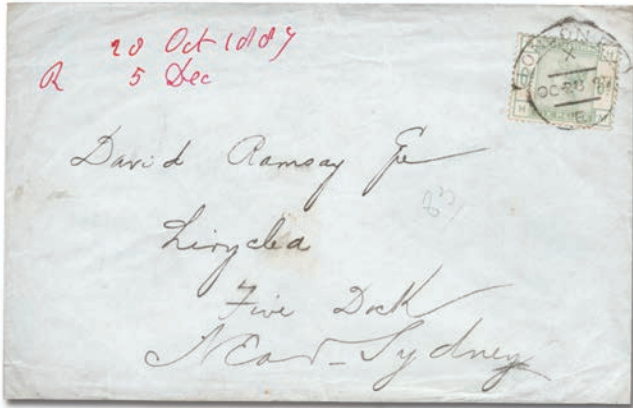 28 Oct 1887
R 5 Dec
LONDON
X
OC 28 87
H
David Ramsay Esq
Five Dock
Near Sydney